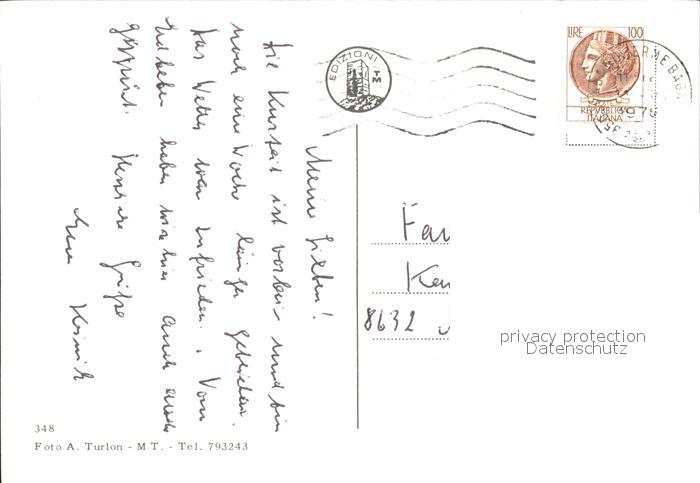 Meine Lieben!
Die Kurzeit ist vorbei und bin
noch eine Woche länger geblieben.
Das Wetter war zufrieden. Vom
Erdbeben haben wir hier auch etwas
gespürt. Herzliche Grüße
Heinrich
EDIZIONI
TM
LIRE 100
REPVBBLICA
ITALIANA
TERME
Fam
8632
privacy protection
Datenschutz
348
Foto A. Turlon - M.T. - Tel. 793243